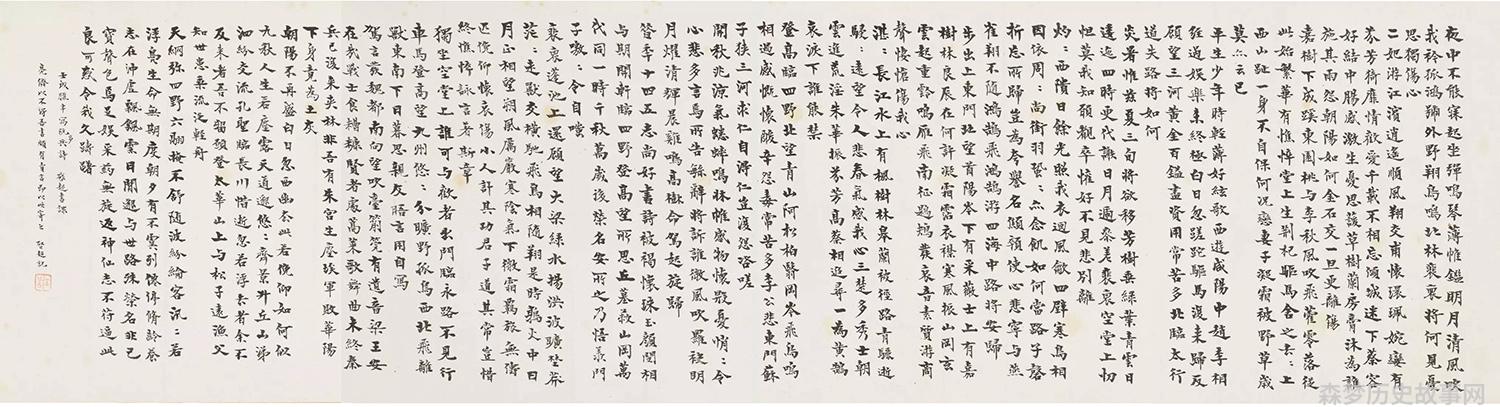 夜中不能寐起坐彈鳴琴薄帷鑑明月清風吹
我衿孤鴻號外野翔鳥鳴北林裵裏將何見憂
思獨傷心
二妃游江濱逍遙順風翔交甫懷環珮婉孌有
芬芳猗靡情歡愛千載不相忘傾城迷下蔡容
好結中腸感激生憂思諼草樹蘭房膏沐為誰
施其雨怨朝陽如何金石交一旦更離傷
嘉樹下成蹊東園桃与李秋風吹飛藿零落從
此始繁華有憔悴堂上生荊杞驅馬舍之去〻上
西山趾一身不自保何況戀妻子凝霜被野草歲
莫亦云已
平生少年時輕薄好絃歌西遊咸陽中趙李相
經過娛樂未終極白日忽蹉跎驅馬復来歸反
顧望三河黃金百鎰盡資用常苦多北臨太行
道失路將如何
炎暑惟茲夏三旬將欲移芳樹垂綠葉青雲自
逶迤四時更代謝日月遞參差裵裏空堂上忉
怛莫我知願覩卒懽好不見悲別離
灼〻西隤日餘光照我衣迴風歘四壁寒鳥相
因依周〻尚銜羽蛩〻亦念飢如何當路子磬
折忘所歸豈為夸譽名顦顇使心悲寧与燕
雀翔不隨鴻鵠飛鴻鵠游四海中路將安歸
步出上東門北望首陽岑下有采薇士上有嘉
樹林良辰在何許凝霜霑衣襟寒風振山岡玄
雲起重陰鳴雁飛南征鶗鴂發哀音素質游商
聲悽愴傷我心
湛〻長江水上有楓樹林皋蘭被徑路青驪逝
駸〻遠望令人悲春氣感我心三楚多秀士朝
雲進荒淫朱華振芬芳高蔡相追尋一為黃鵠
哀淚下誰能禁
登高臨四野北望青山阿松柏翳岡岑飛鳥鳴
相過感慨懷酸辛怨毒常苦多李公悲東門蘇
子狹三河求仁自得仁豈復怨咨嗟
開秋兆涼氣蟋蟀鳴牀帷感物懷殷憂悄〻令
心悲多言焉所告繁辭將訴誰微風吹羅袂明
月燿清輝晨雞鳴高樹命駕起旋歸
昔年十四五志尚好書詩被褐懷珠玉顏閔相
与期開軒臨四野登高望所思丘墓蔽山岡萬
代同一時千秋萬歲後榮名安所之乃悟羨門
子噭〻令自嗤
裵裏蓬池上還顧望大梁綠水揚洪波曠野莽
茫〻走獸交橫馳飛鳥相隨翔是時鶉火中日
月正相望朔風厲嚴寒陰氣下微霜羈旅無儔
匹俛仰懷哀傷小人計其功君子道其常豈惜
終憔悴詠言著斯章
獨坐空堂上誰可与歡者出門臨永路不見行
車馬登高望九州悠〻分曠野孤鳥西北飛離
獸東南下日暮思親友晤言用自寫
駕言發魏都南向望吹臺簫管有遺音梁王安
在哉戰士食糟糠賢者處蒿萊歌舞曲未終秦
兵已復来夾林非吾有朱宮生塵埃軍敗華陽
下身竟為土灰
朝陽不再盛白日忽西幽去此若俛仰如何似
九秋人生若塵露天道邈悠〻齊景升丘山涕
泗紛交流孔聖臨長川惜逝忽若浮去者余不
及来者吾不留願登太華山上与松子遠漁父
知世患乘流泛輕舟
天網彌四野六翮掩不舒隨波紛綸客汎〻若
浮鳧生命無期度朝夕有不虞列僊停脩齡養
志在沖虛飄飖雲日間邈与世路殊榮名非己
寶聲色焉足娛采藥無旋返神仙志不符逼此
良可惑令我久躊躇
森梦历史故事网